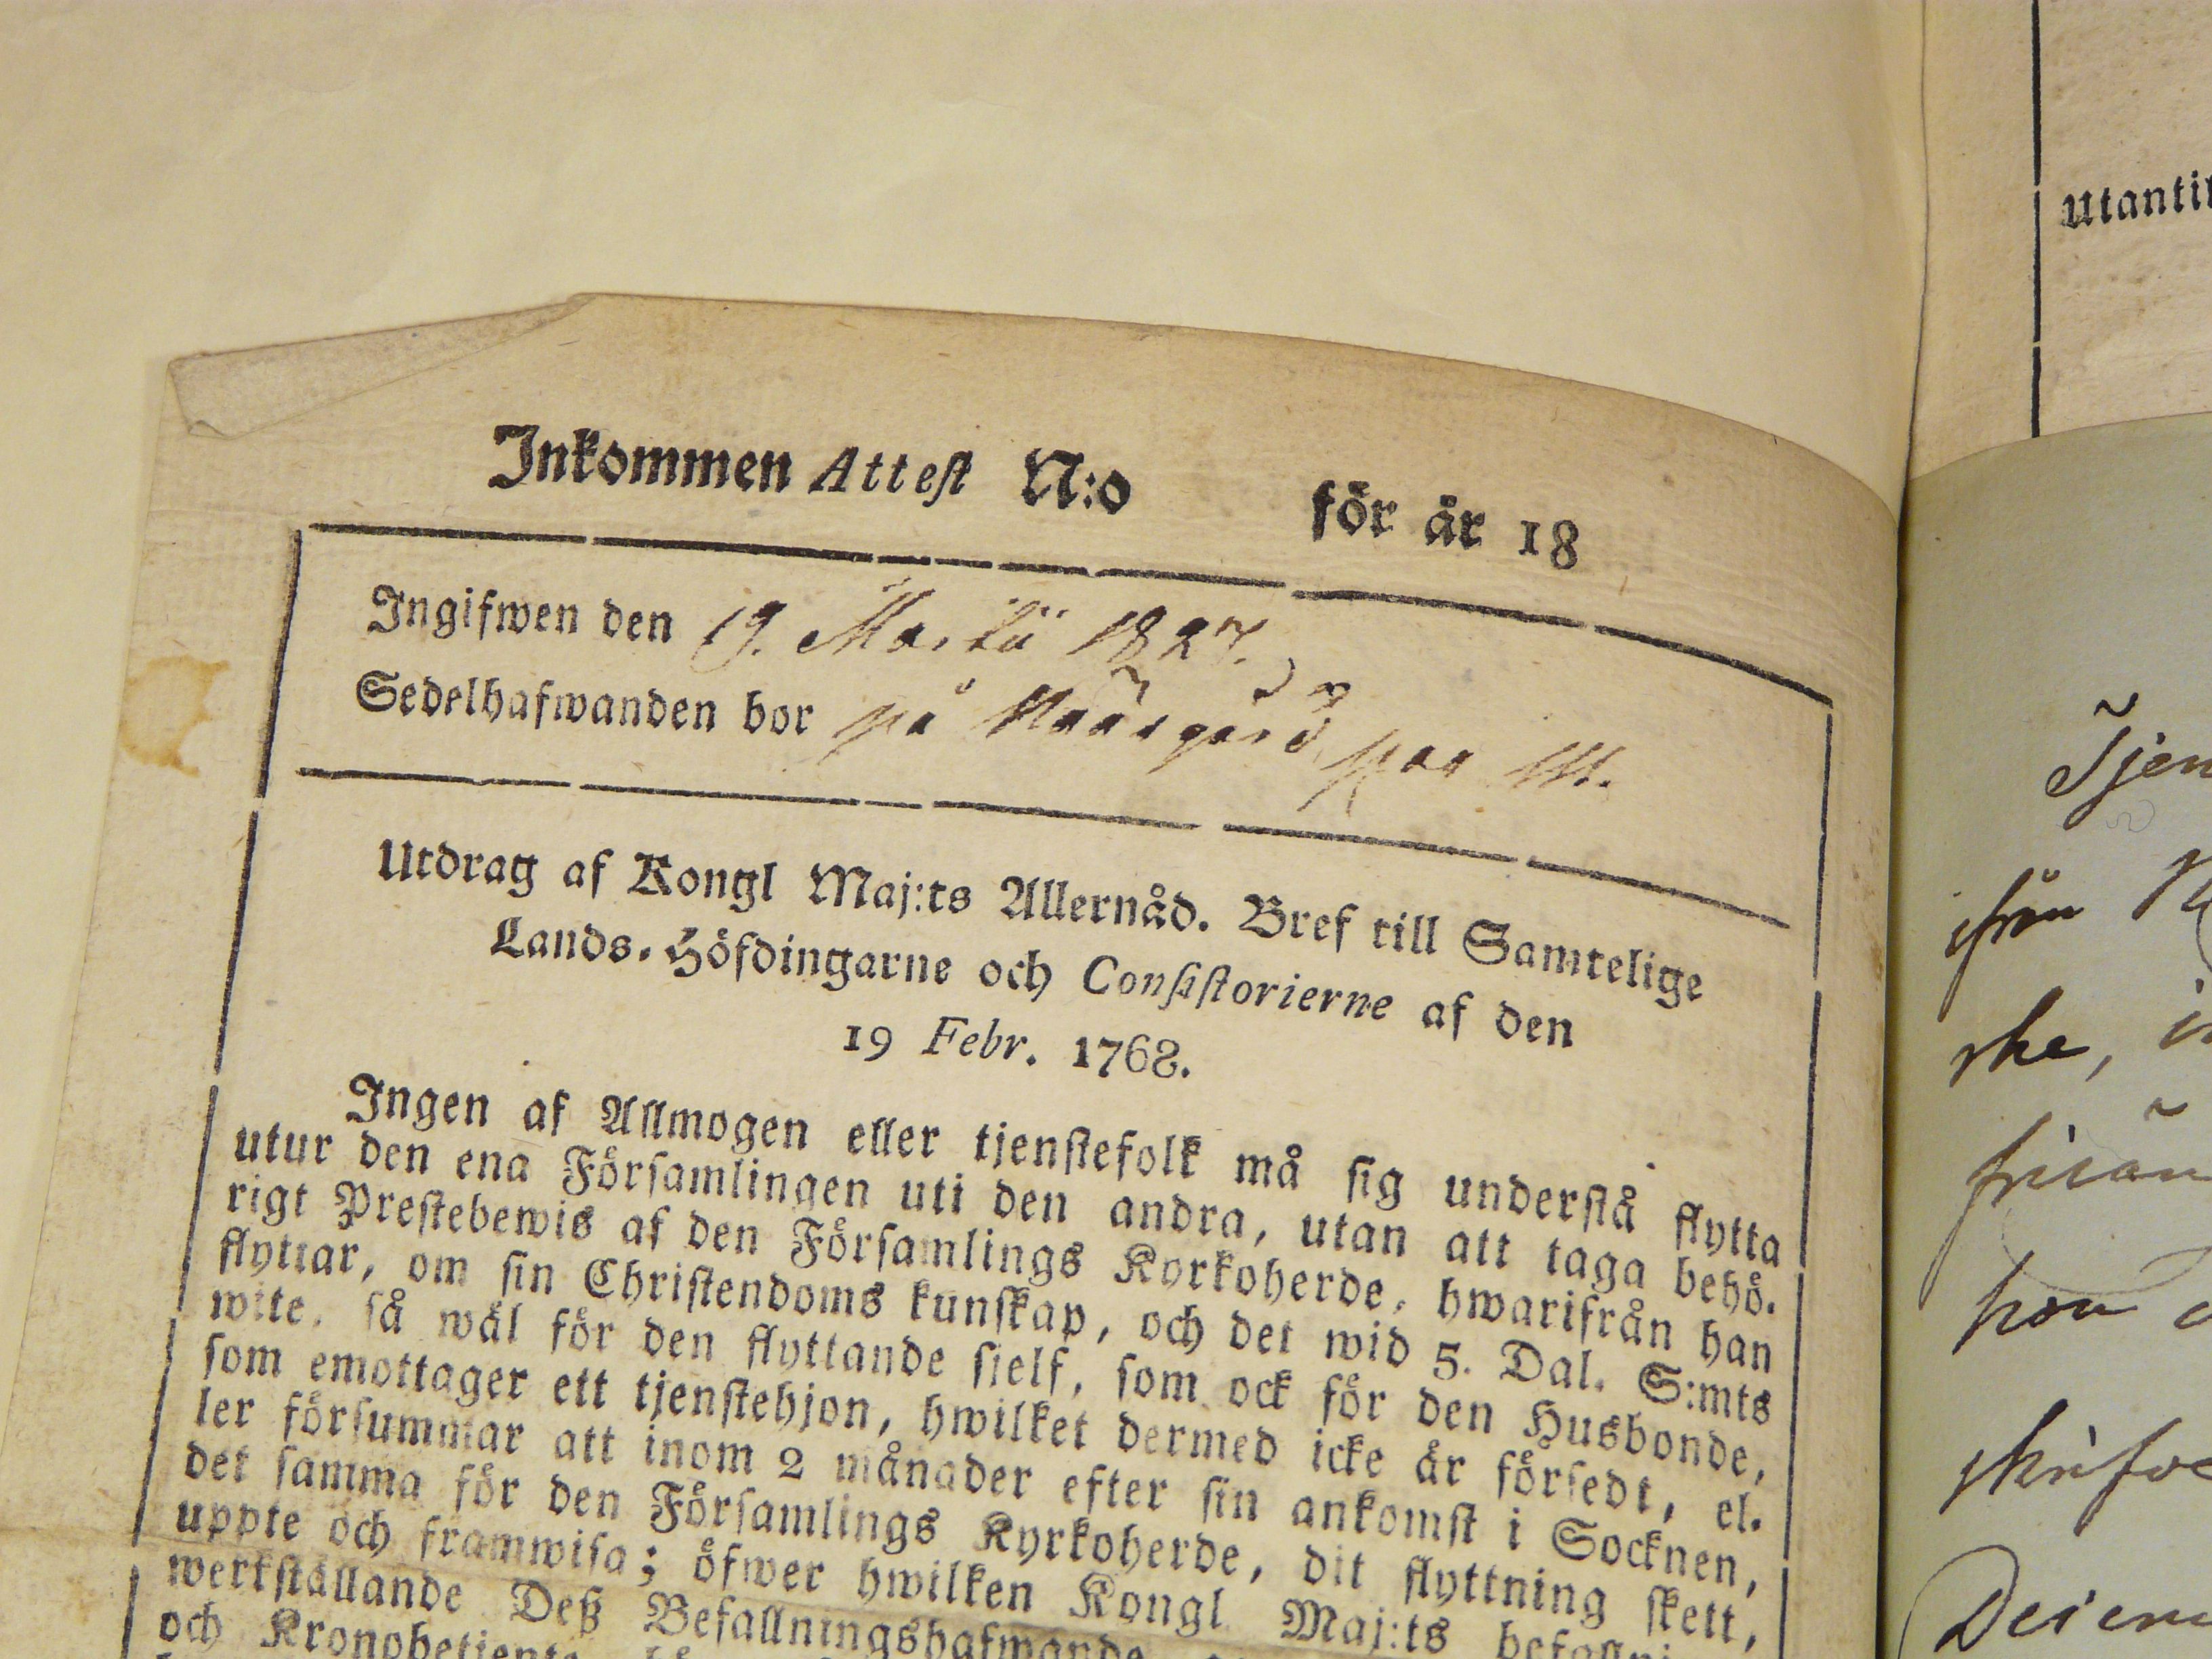 Inkommen Attest N:o för år 18
Ingifwen den 19. Martii 1827.
Sedelhafwanden bor på
Utdrag af Kongl Maj:ts Allernåd. Bref till Samtelige
Lands-Höfdingarne och Consistorierne af den
19 Febr. 1768.
Ingen af Allmogen eller tjenstefolk må sig understå flytta
utur den ena Församlingen uti den andra, utan att taga behö-
rigt Prestebewis af den Församlings Kyrkoherde, hwarifrån han
flyttar, om sin Christendoms kunskap, och det wid 5. Dal. S:mts
wite, så wäl för den flyttande sjelf, som ock för den Husbonde,
som emottager ett tjenstehjon, hwilket dermed icke är försedt, el-
ler försummar att inom 2 månader efter sin ankomst i Socknen,
det samma för den Församlings Kyrkoherde, dit flyttning skett,
uppte och framwisa; öfwer hwilken Kongl Maj:ts
werkställande Deß Befallningshafwande
och Kronobetjente
Utantil
Tjen
ifrån
ske,
hon
skrifve